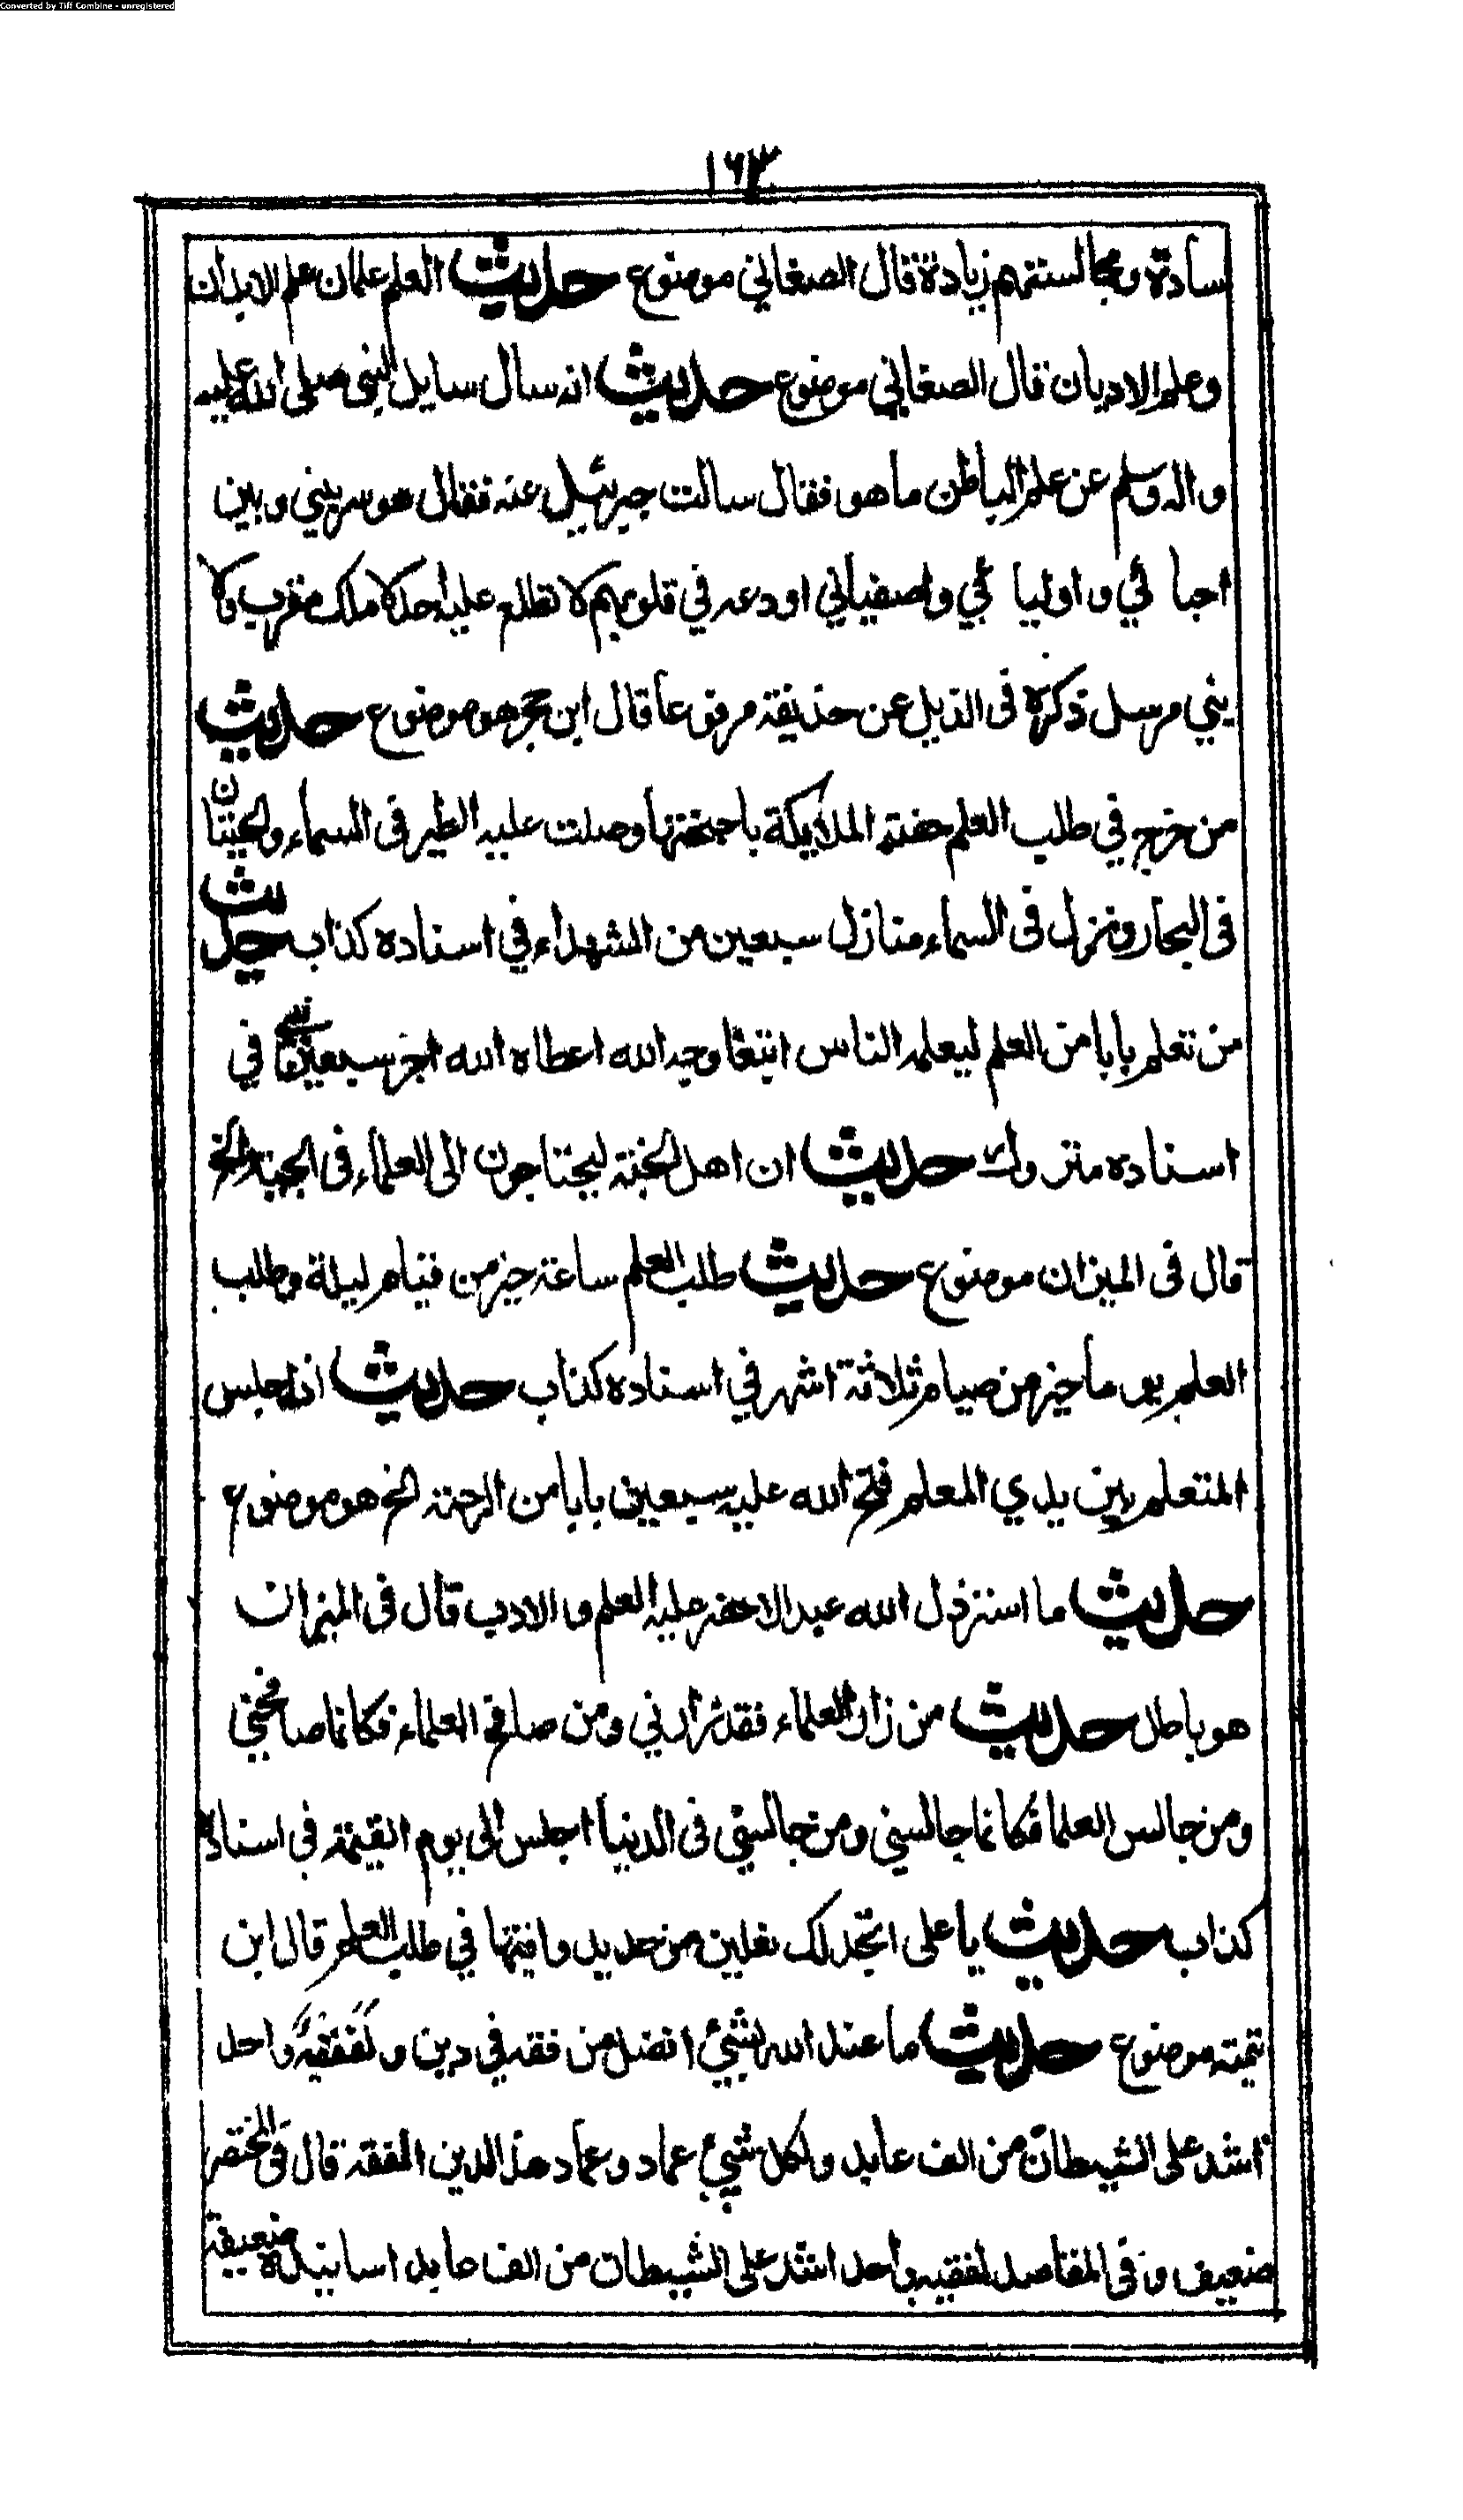 Converted by Tiff Combine - unregistered
١٦٣
سادة ومجالستهم زيادة قال الصغاني موضوع حديث العلم علمان علم الابدان
وعلم الاديان قال الصغاني موضوع حديث انه سال سايل النبى صلى الله عليه
واله وسلم عن علم الباطن ما هو فقال سالت جبرئيل عنه فقال هو سر بيني وبين
احبائي واوليائي واصفيائي اودعه في قلوبهم لا تطلع عليه احد لا ملك مقرب ولا
نبي مرسل ذكره فى الذيل عن حذيفة مرفوعا قال ابن حجر هو موضوع حديث
من خرج في طلب العلم حفته الملائكة باجنحتها وصلت عليه الطير فى السماء والحيتان
فى البحار ونزل فى السماء منازل سبعين من الشهداء في اسناده كذاب حديث
من تعلم بابا من العلم ليعلمه الناس ابتغا وجه الله اعطاه الله اجر سبعين نبيا في
اسناده متروك حديث ان اهل الجنة ليحتاجون الى العلماء فى الجنة الخ
قال فى الميزان موضوع حديث طلب العلم ساعة خير من قيام ليلة وطلب
العلم يوما خير من صيام ثلاثة اشهر في اسناده كذاب حديث اذا جلس
المتعلم بين يدي المعلم فتح الله عليه سبعين بابا من الرحمة الخ هو موضوع
حديث ما استرذل الله عبدا لا حضر عليه العلم والادب قال فى الميزان
هو باطل حديث من زار العلماء فقد زارني ومن صافح العلماء فكانما صافحني
ومن جالس العلما فكانما جالسني ومن جالسني فى الدنيا اجلس الى يوم القيمة في اسناده
كذاب حديث يا على اتخذ لك نعلين من حديد وافنهما في طلب العلم قال ابن
تيميه موضوع حديث ما عند الله بشيئ افضل من فقه في دين ولفقيه واحد
اشد على الشيطان من الف عابد ولكل شيئ عماد وعماد هذا الدين الفقه قال فى المختصر
ضعيف وفى المقاصد لفقيه واحد اشد على الشيطان من الف عابد اسانيده ضعيفة